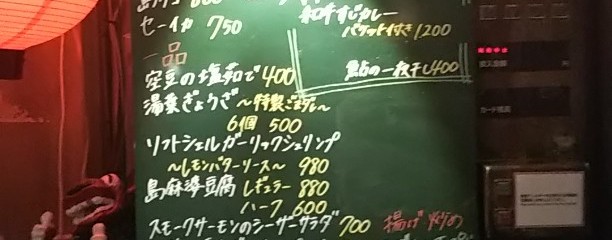 セーイカ 750
和牛すじカレー
バケット付き 1200
一品
空豆の塩茹で 400
湯葉ぎょうざ 〜特製ごまダレ〜
6個 500
ソフトシェルガーリックシュリンプ
〜レモンバターソース〜 980
島麻婆豆腐 レギュラー 880
ハーフ 600
スモークサーモンのシーザーサラダ 700
の一枚干し 400
揚げ 炒め